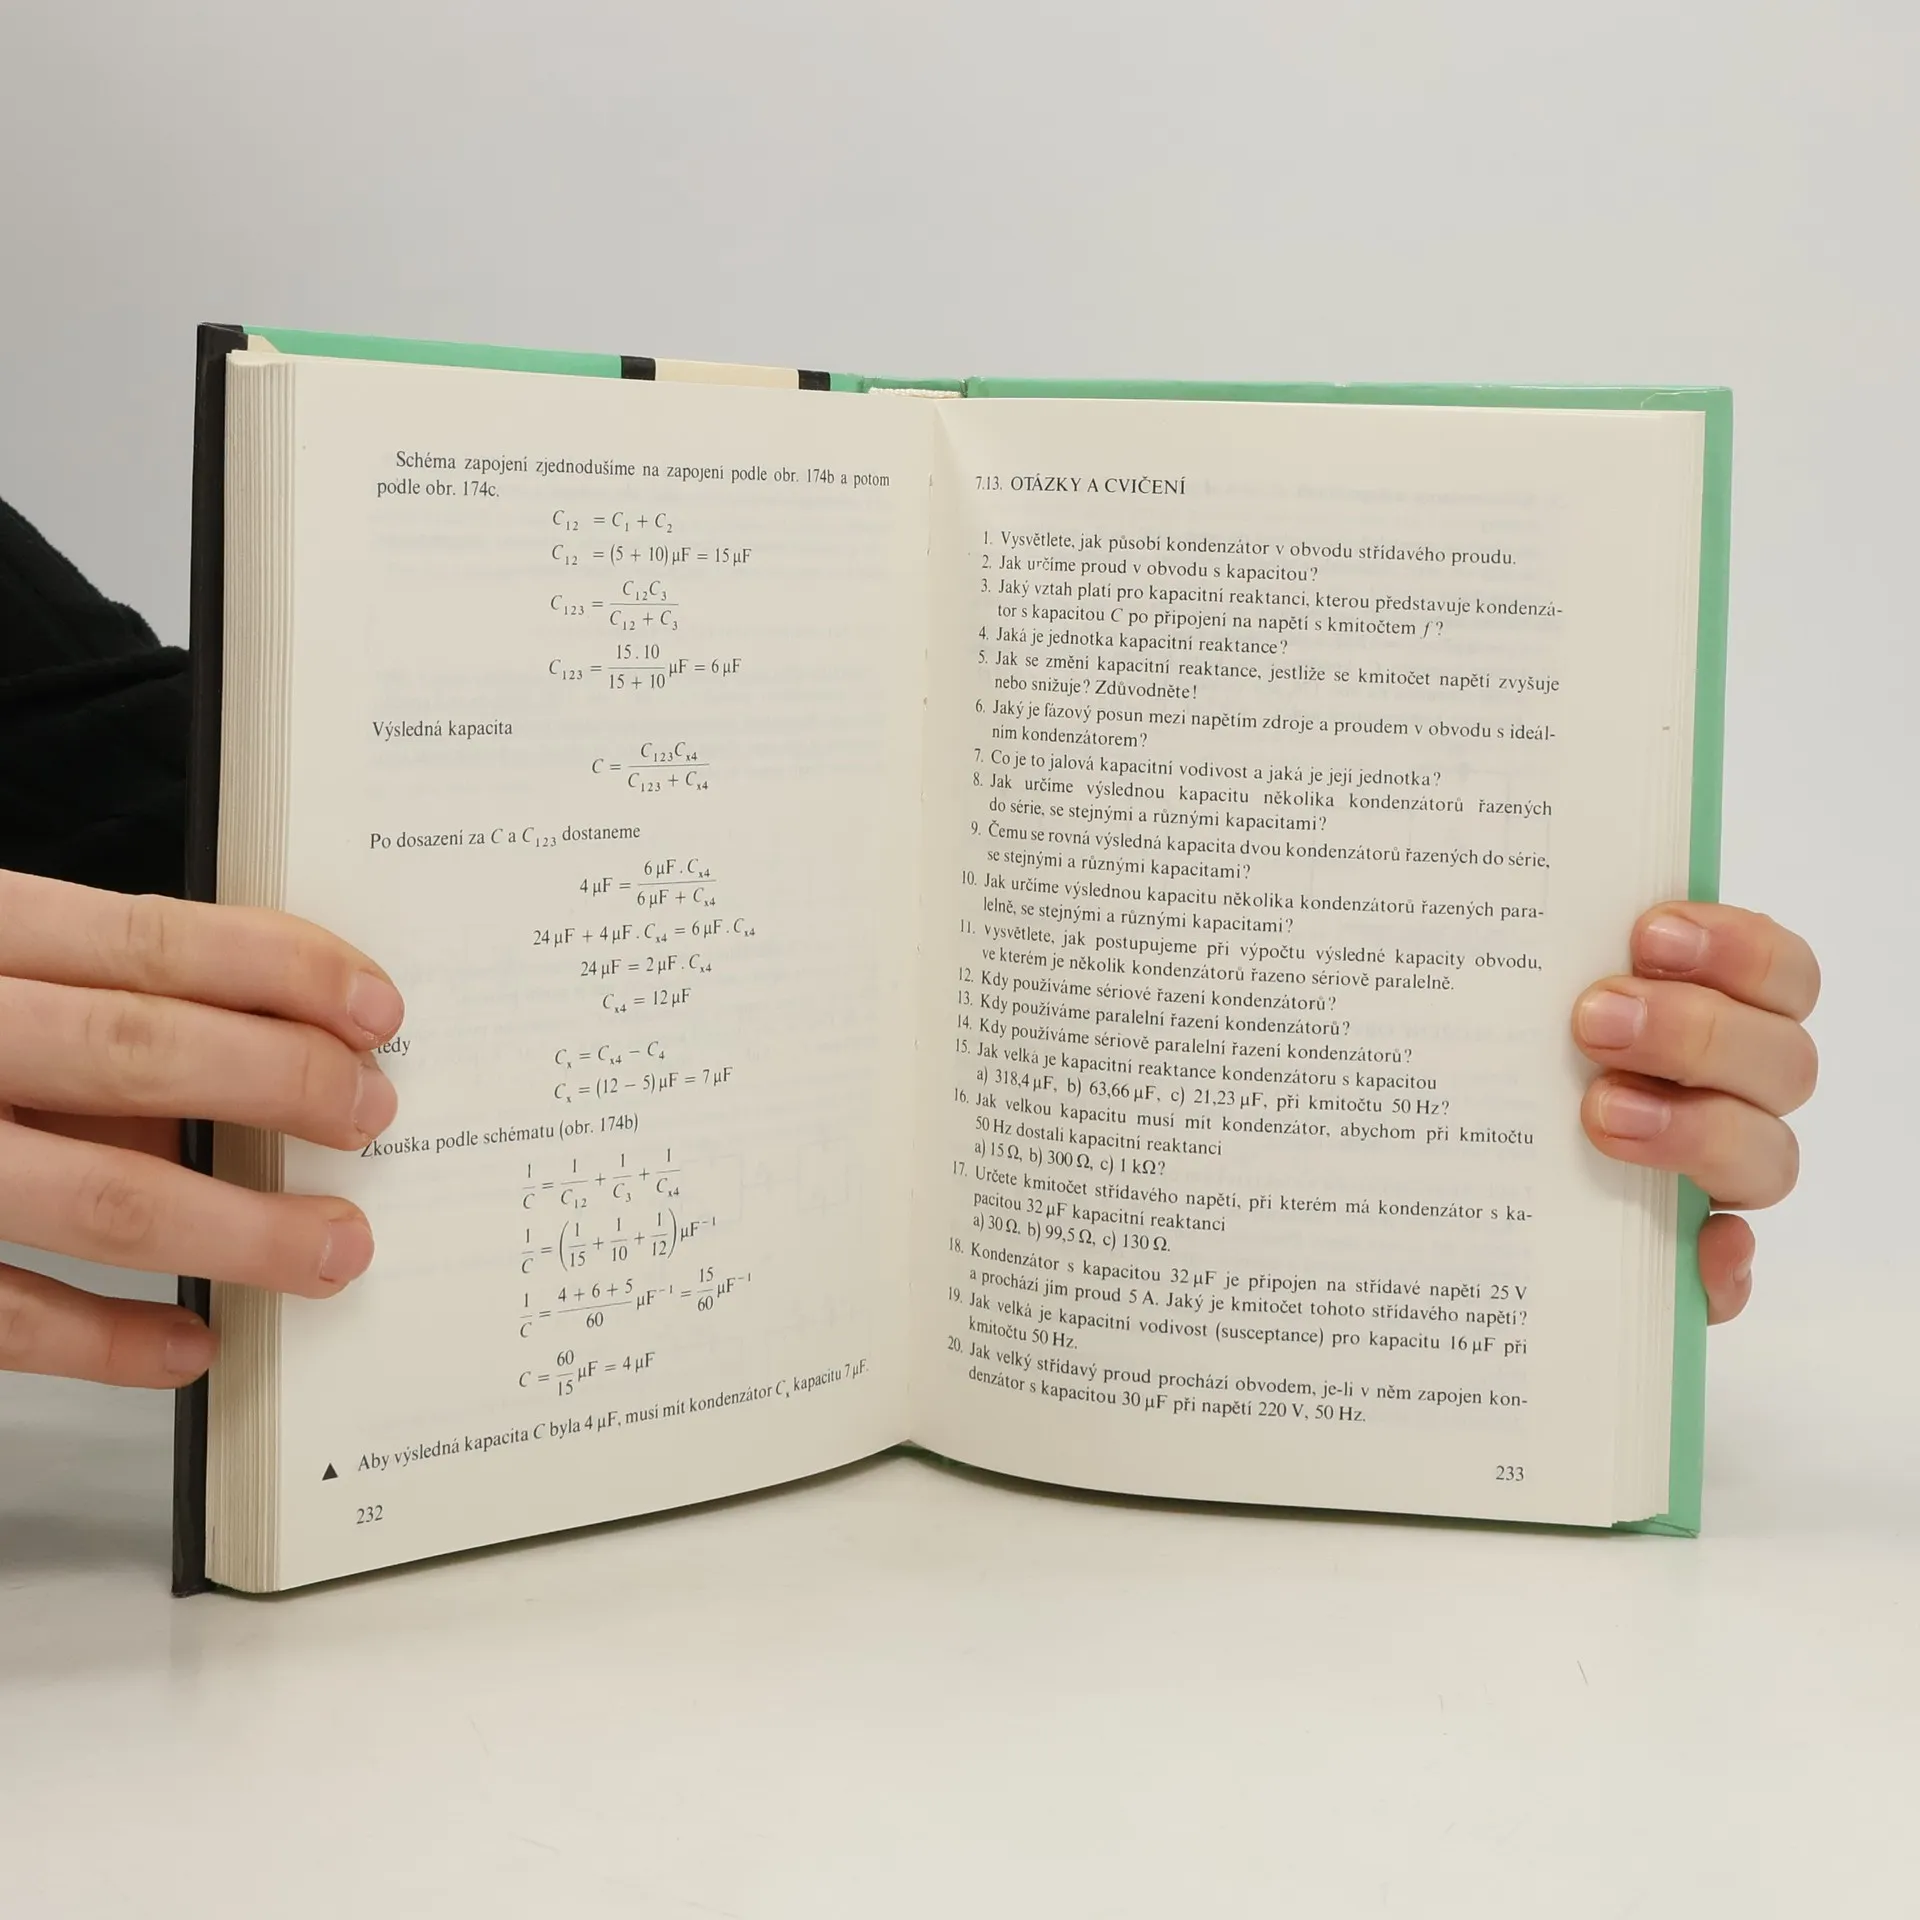 Schéma zapojení zjednodušíme na zapojení podle obr. 174b a potom
podle obr. 174c.
C₁₂ = C₁ + C₂
C₁₂ = (5 + 10) μF = 15 μF
C₁₂₃ = C₁₂C₃ / (C₁₂ + C₃)
C₁₂₃ = (15 . 10) / (15 + 10) μF = 6 μF
Výsledná kapacita
C = C₁₂₃Cₓ₄ / (C₁₂₃ + Cₓ₄)
Po dosazení za C a C₁₂₃ dostaneme
4 μF = 6 μF . Cₓ₄ / (6 μF + Cₓ₄)
24 μF + 4 μF . Cₓ₄ = 6 μF . Cₓ₄
24 μF = 2 μF . Cₓ₄
Cₓ₄ = 12 μF
tedy
Cₓ = Cₓ₄ − C₄
Cₓ = (12 − 5) μF = 7 μF
Zkouška podle schématu (obr. 174b)
1/C = 1/C₁₂ + 1/C₃ + 1/Cₓ₄
1/C = (1/15 + 1/10 + 1/12) μF⁻¹
1/C = (4 + 6 + 5)/60 μF⁻¹ = 15/60 μF⁻¹
C = 60/15 μF = 4 μF
▲ Aby výsledná kapacita C byla 4 μF, musí mít kondenzátor Cₓ kapacitu 7 μF.
232
7.13. OTÁZKY A CVIČENÍ
1. Vysvětlete, jak působí kondenzátor v obvodu střídavého proudu.
2. Jak určíme proud v obvodu s kapacitou?
3. Jaký vztah platí pro kapacitní reaktanci, kterou představuje kondenzá-
tor s kapacitou C po připojení na napětí s kmitočtem f?
4. Jaká je jednotka kapacitní reaktance?
5. Jak se změní kapacitní reaktance, jestliže se kmitočet napětí zvyšuje
nebo snižuje? Zdůvodněte!
6. Jaký je fázový posun mezi napětím zdroje a proudem v obvodu s ideál-
ním kondenzátorem?
7. Co je to jalová kapacitní vodivost a jaká je její jednotka?
8. Jak určíme výslednou kapacitu několika kondenzátorů řazených
do série, se stejnými a různými kapacitami?
9. Čemu se rovná výsledná kapacita dvou kondenzátorů řazených do série,
se stejnými a různými kapacitami?
10. Jak určíme výslednou kapacitu několika kondenzátorů řazených para-
lelně, se stejnými a různými kapacitami?
11. Vysvětlete, jak postupujeme při výpočtu výsledné kapacity obvodu,
ve kterém je několik kondenzátorů řazeno sériově paralelně.
12. Kdy používáme sériové řazení kondenzátorů?
13. Kdy používáme paralelní řazení kondenzátorů?
14. Kdy používáme sériově paralelní řazení kondenzátorů?
15. Jak velká je kapacitní reaktance kondenzátoru s kapacitou
a) 318,4 μF, b) 63,66 μF, c) 21,23 μF, při kmitočtu 50 Hz?
16. Jak velkou kapacitu musí mít kondenzátor, abychom při kmitočtu
50 Hz dostali kapacitní reaktanci
a) 15 Ω, b) 300 Ω, c) 1 kΩ?
17. Určete kmitočet střídavého napětí, při kterém má kondenzátor s ka-
pacitou 32 μF kapacitní reaktanci
a) 30 Ω. b) 99,5 Ω, c) 130 Ω.
18. Kondenzátor s kapacitou 32 μF je připojen na střídavé napětí 25 V
a prochází jím proud 5 A. Jaký je kmitočet tohoto střídavého napětí?
19. Jak velká je kapacitní vodivost (susceptance) pro kapacitu 16 μF při
kmitočtu 50 Hz.
20. Jak velký střídavý proud prochází obvodem, je-li v něm zapojen kon-
denzátor s kapacitou 30 μF při napětí 220 V, 50 Hz.
233